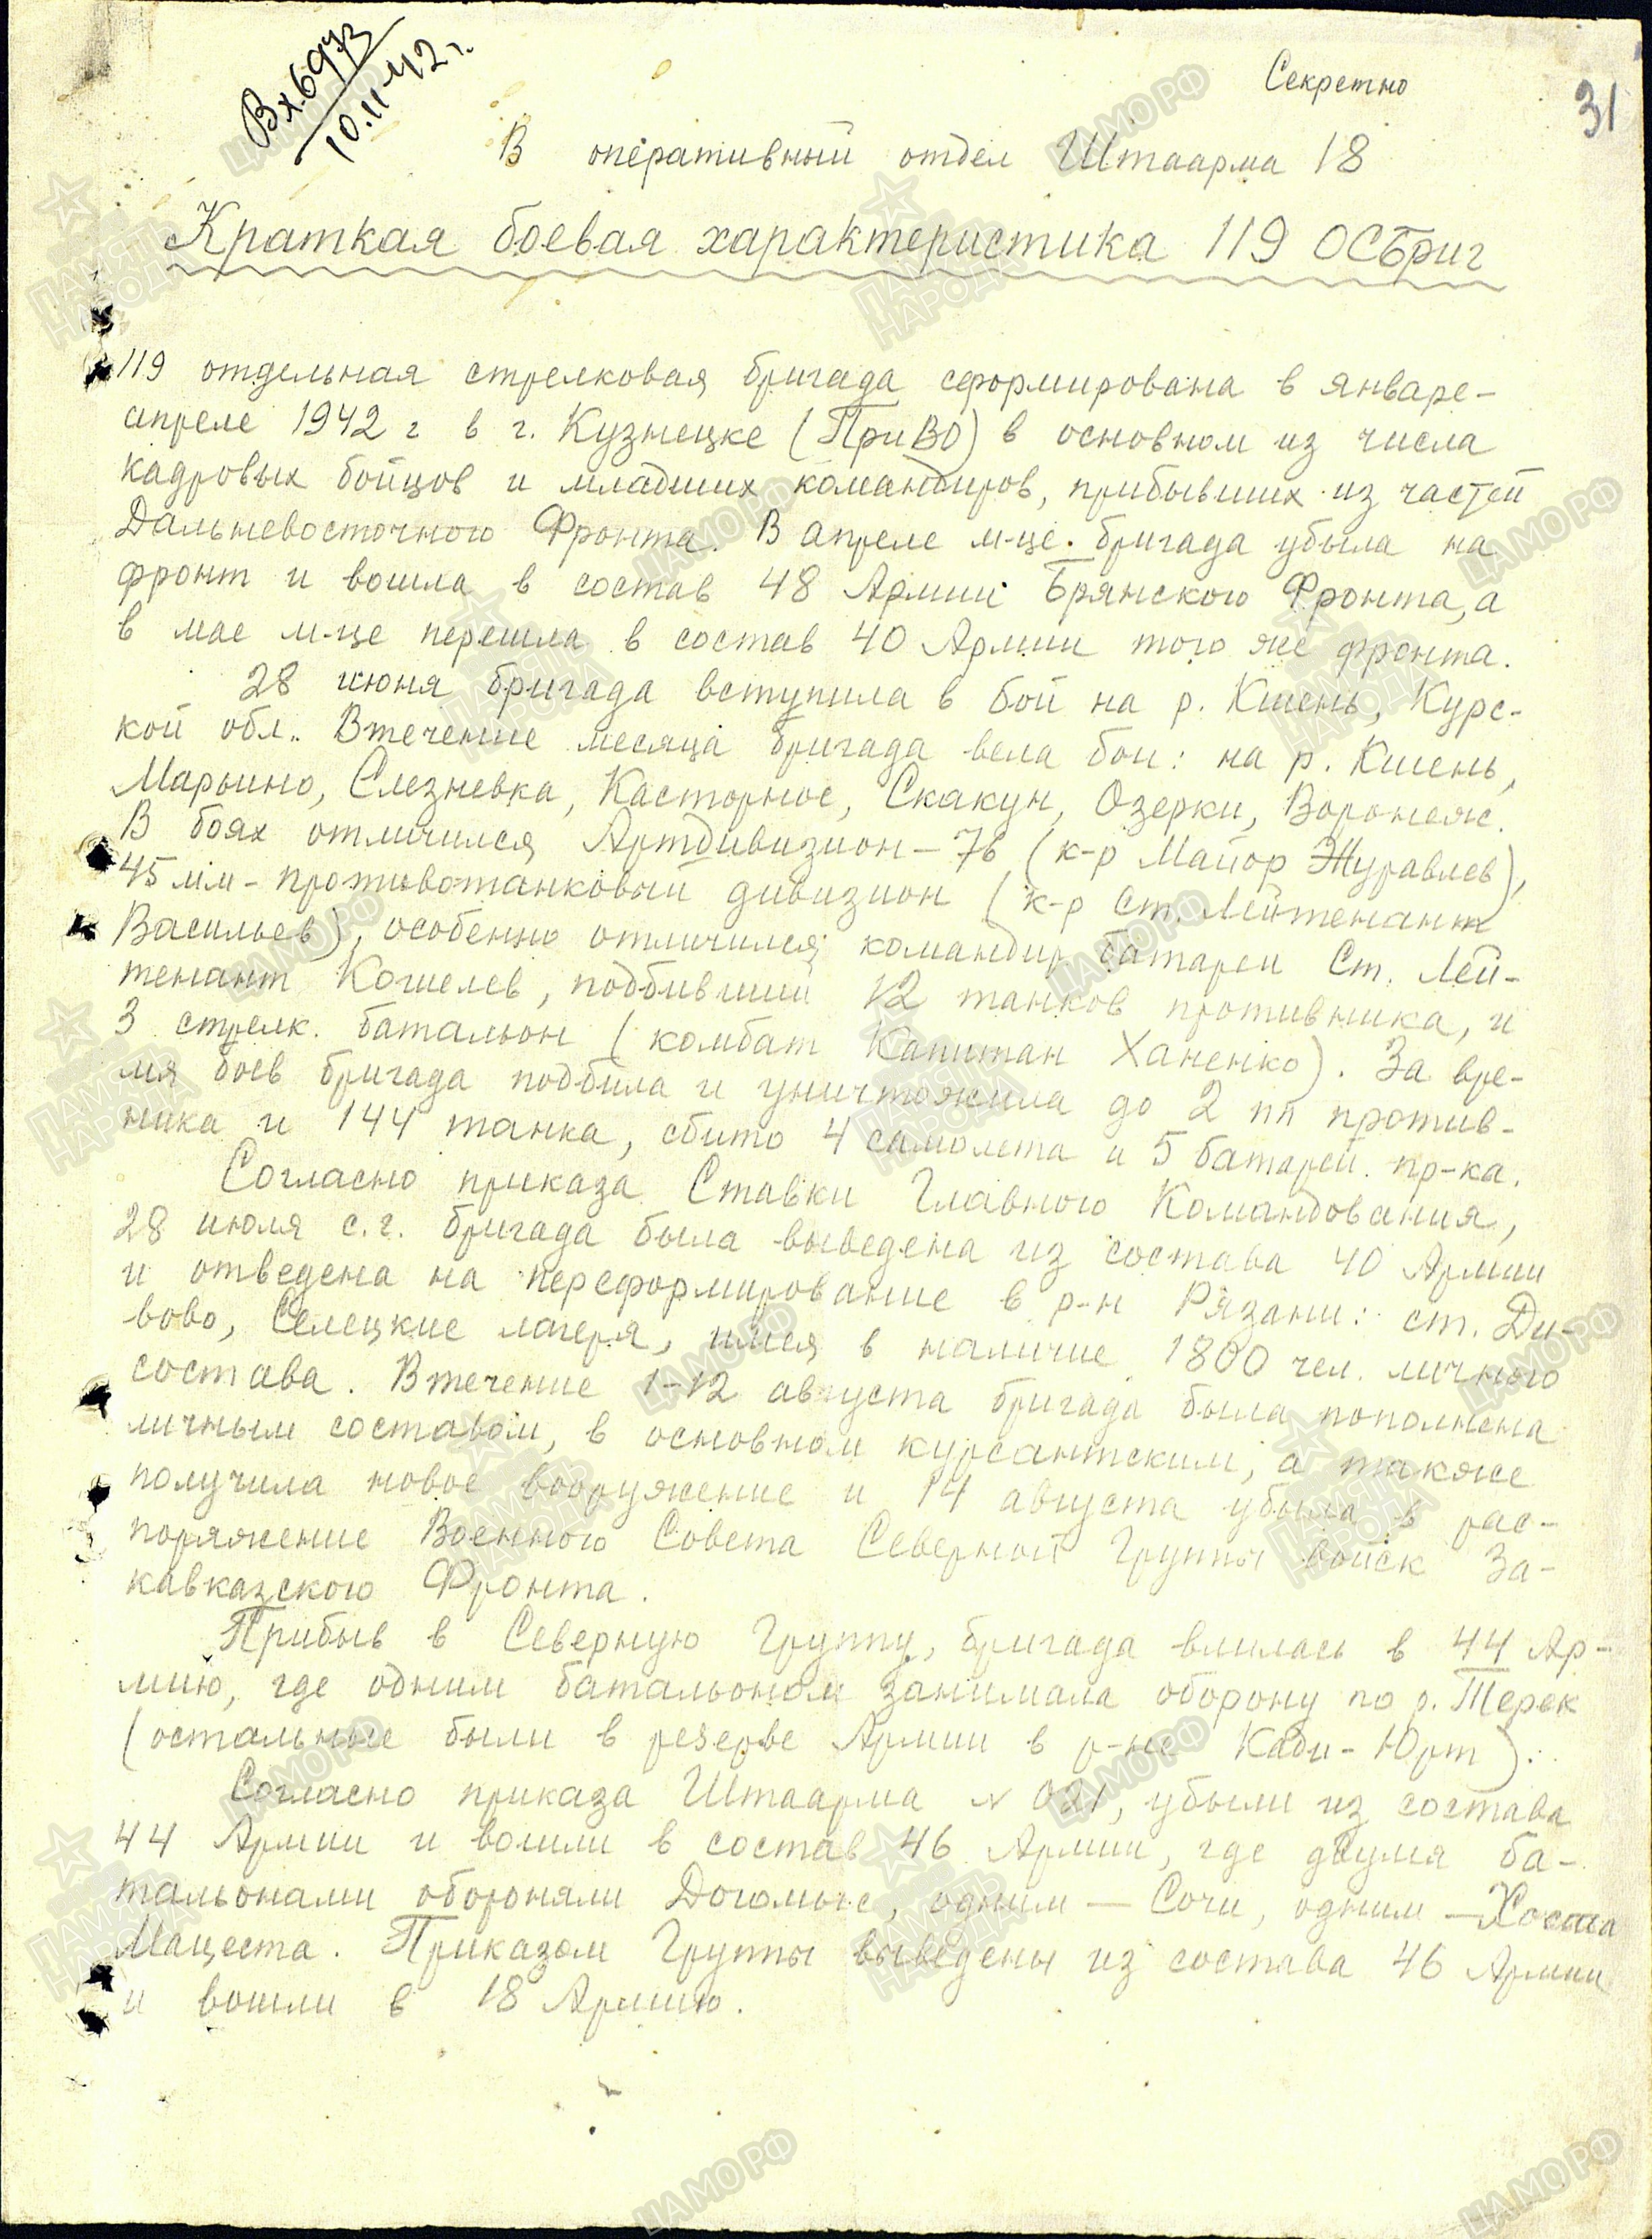 Вх.6973
10.11.42 г.
Секретно
31
В оперативный отдел Штаарма 18
Краткая боевая характеристика 119 ОСБриг
119 отдельная стрелковая бригада сформирована в январе-
апреле 1942 г в г. Кузнецке (ПриВО) в основном из числа
кадровых бойцов и младших командиров, прибывших из частей
Дальневосточного Фронта. В апреле м-це бригада убыла на
фронт и вошла в состав 48 Армии Брянского Фронта, а
в мае м-це перешла в состав 40 Армии того же фронта.
28 июня бригада вступила в бой на р. Кшень, Курс-
кой обл.. Втечение месяца бригада вела бои: на р. Кшень,
Марьино, Слезневка, Касторное, Скакун, Озерки, Воронеж.
В боях отличился Артдивизион-76 (к-р Майор Журавлев),
45 мм-противотанковый дивизион (к-р Ст. Лейтенант
Васильев), особенно отличился командир батареи Ст. Лей-
тенант Кошелев, подбивший 12 танков противника, и
3 стрелк. батальон (комбат Капитан Ханенко). За вре-
мя боев бригада подбила и уничтожила до 2 пп против-
ника и 144 танка, сбито 4 самолета и 5 батарей пр-ка.
Согласно приказа Ставки Главного Командования,
28 июля с.г. бригада была выведена из состава 40 Армии
и отведена на переформирование в р-н Рязани: ст. Ди-
вово, Селецкие лагеря, имея в наличие 1800 чел. личного
состава. Втечение 1-12 августа бригада была пополнена
личным составом, в основном курсантским, а также
получила новое вооружение и 14 августа убыла в рас-
поряжение Военного Совета Северной Группы войск За-
кавказского Фронта.
Прибыв в Северную Группу, бригада влилась в 44 Ар-
мию, где одним батальоном занимала оборону по р. Терек
(остальные были в резерве Армии в р-не Кади-Юрт).
Согласно приказа Штаарма № 021, убыли из состава
44 Армии и вошли в состав 46 Армии, где двумя ба-
тальонами обороняли Догомыс, одним — Сочи, одним — Хоста
Мацеста. Приказом Группы выведены из состава 46 Армии
и вошли в 18 Армию.
ЦАМО РФ
ПАМЯТЬ НАРОДА